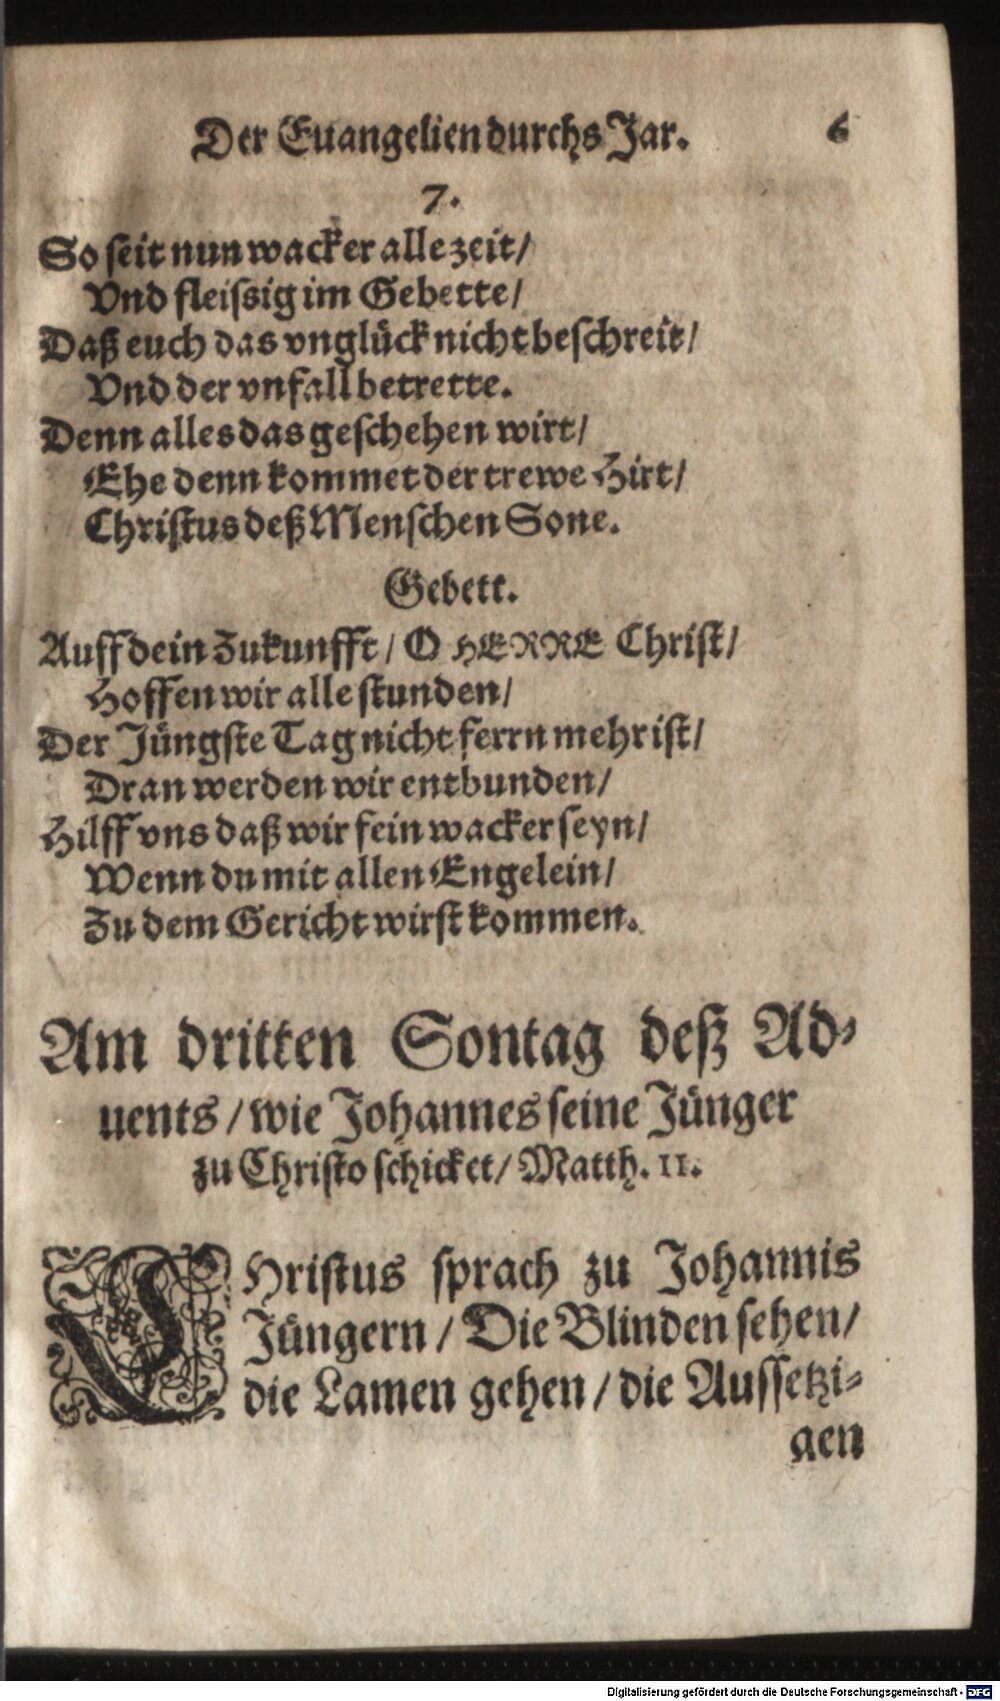 Der Euangelien durchs Jar. 6
7.
So seit nun wacker alle zeit/
Vnd fleissig im Gebette/
Daß euch das vnglück nicht beschreit/
Vnd der vnfall betrette.
Denn alles das geschehen wirt/
Ehe denn kommet der trewe Hirt/
Christus deß Menschen Sone.
Gebett.
Auff dein Zukunfft/ O HERRE Christ/
Hoffen wir alle stunden/
Der Jüngste Tag nicht ferrn mehr ist/
Dran werden wir entbunden/
Hilff vns daß wir fein wacker seyn/
Wenn du mit allen Engelein/
Zu dem Gericht wirst kommen.
Am dritten Sontag deß Ad-
uents/ wie Johannes seine Jünger
zu Christo schicket/ Matth. 11.
CHristus sprach zu Johannis
Jüngern/ Die Blinden sehen/
die Lamen gehen/ die Aussetzi-
gen
Digitalisierung gefördert durch die Deutsche Forschungsgemeinschaft - DFG